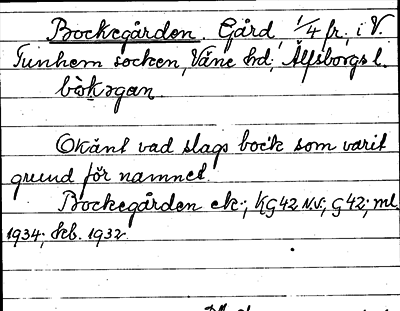 Bockegården. Gård, 1/4 fr., i V.
Tunhem socken, Väne hd, Älfsborgs l.
bòkəgan
Okänt vad slags bock som varit
grund för namnet.
Bockegården ek.; KG42 NV; G42; ml.
1934; Seb. 1932.